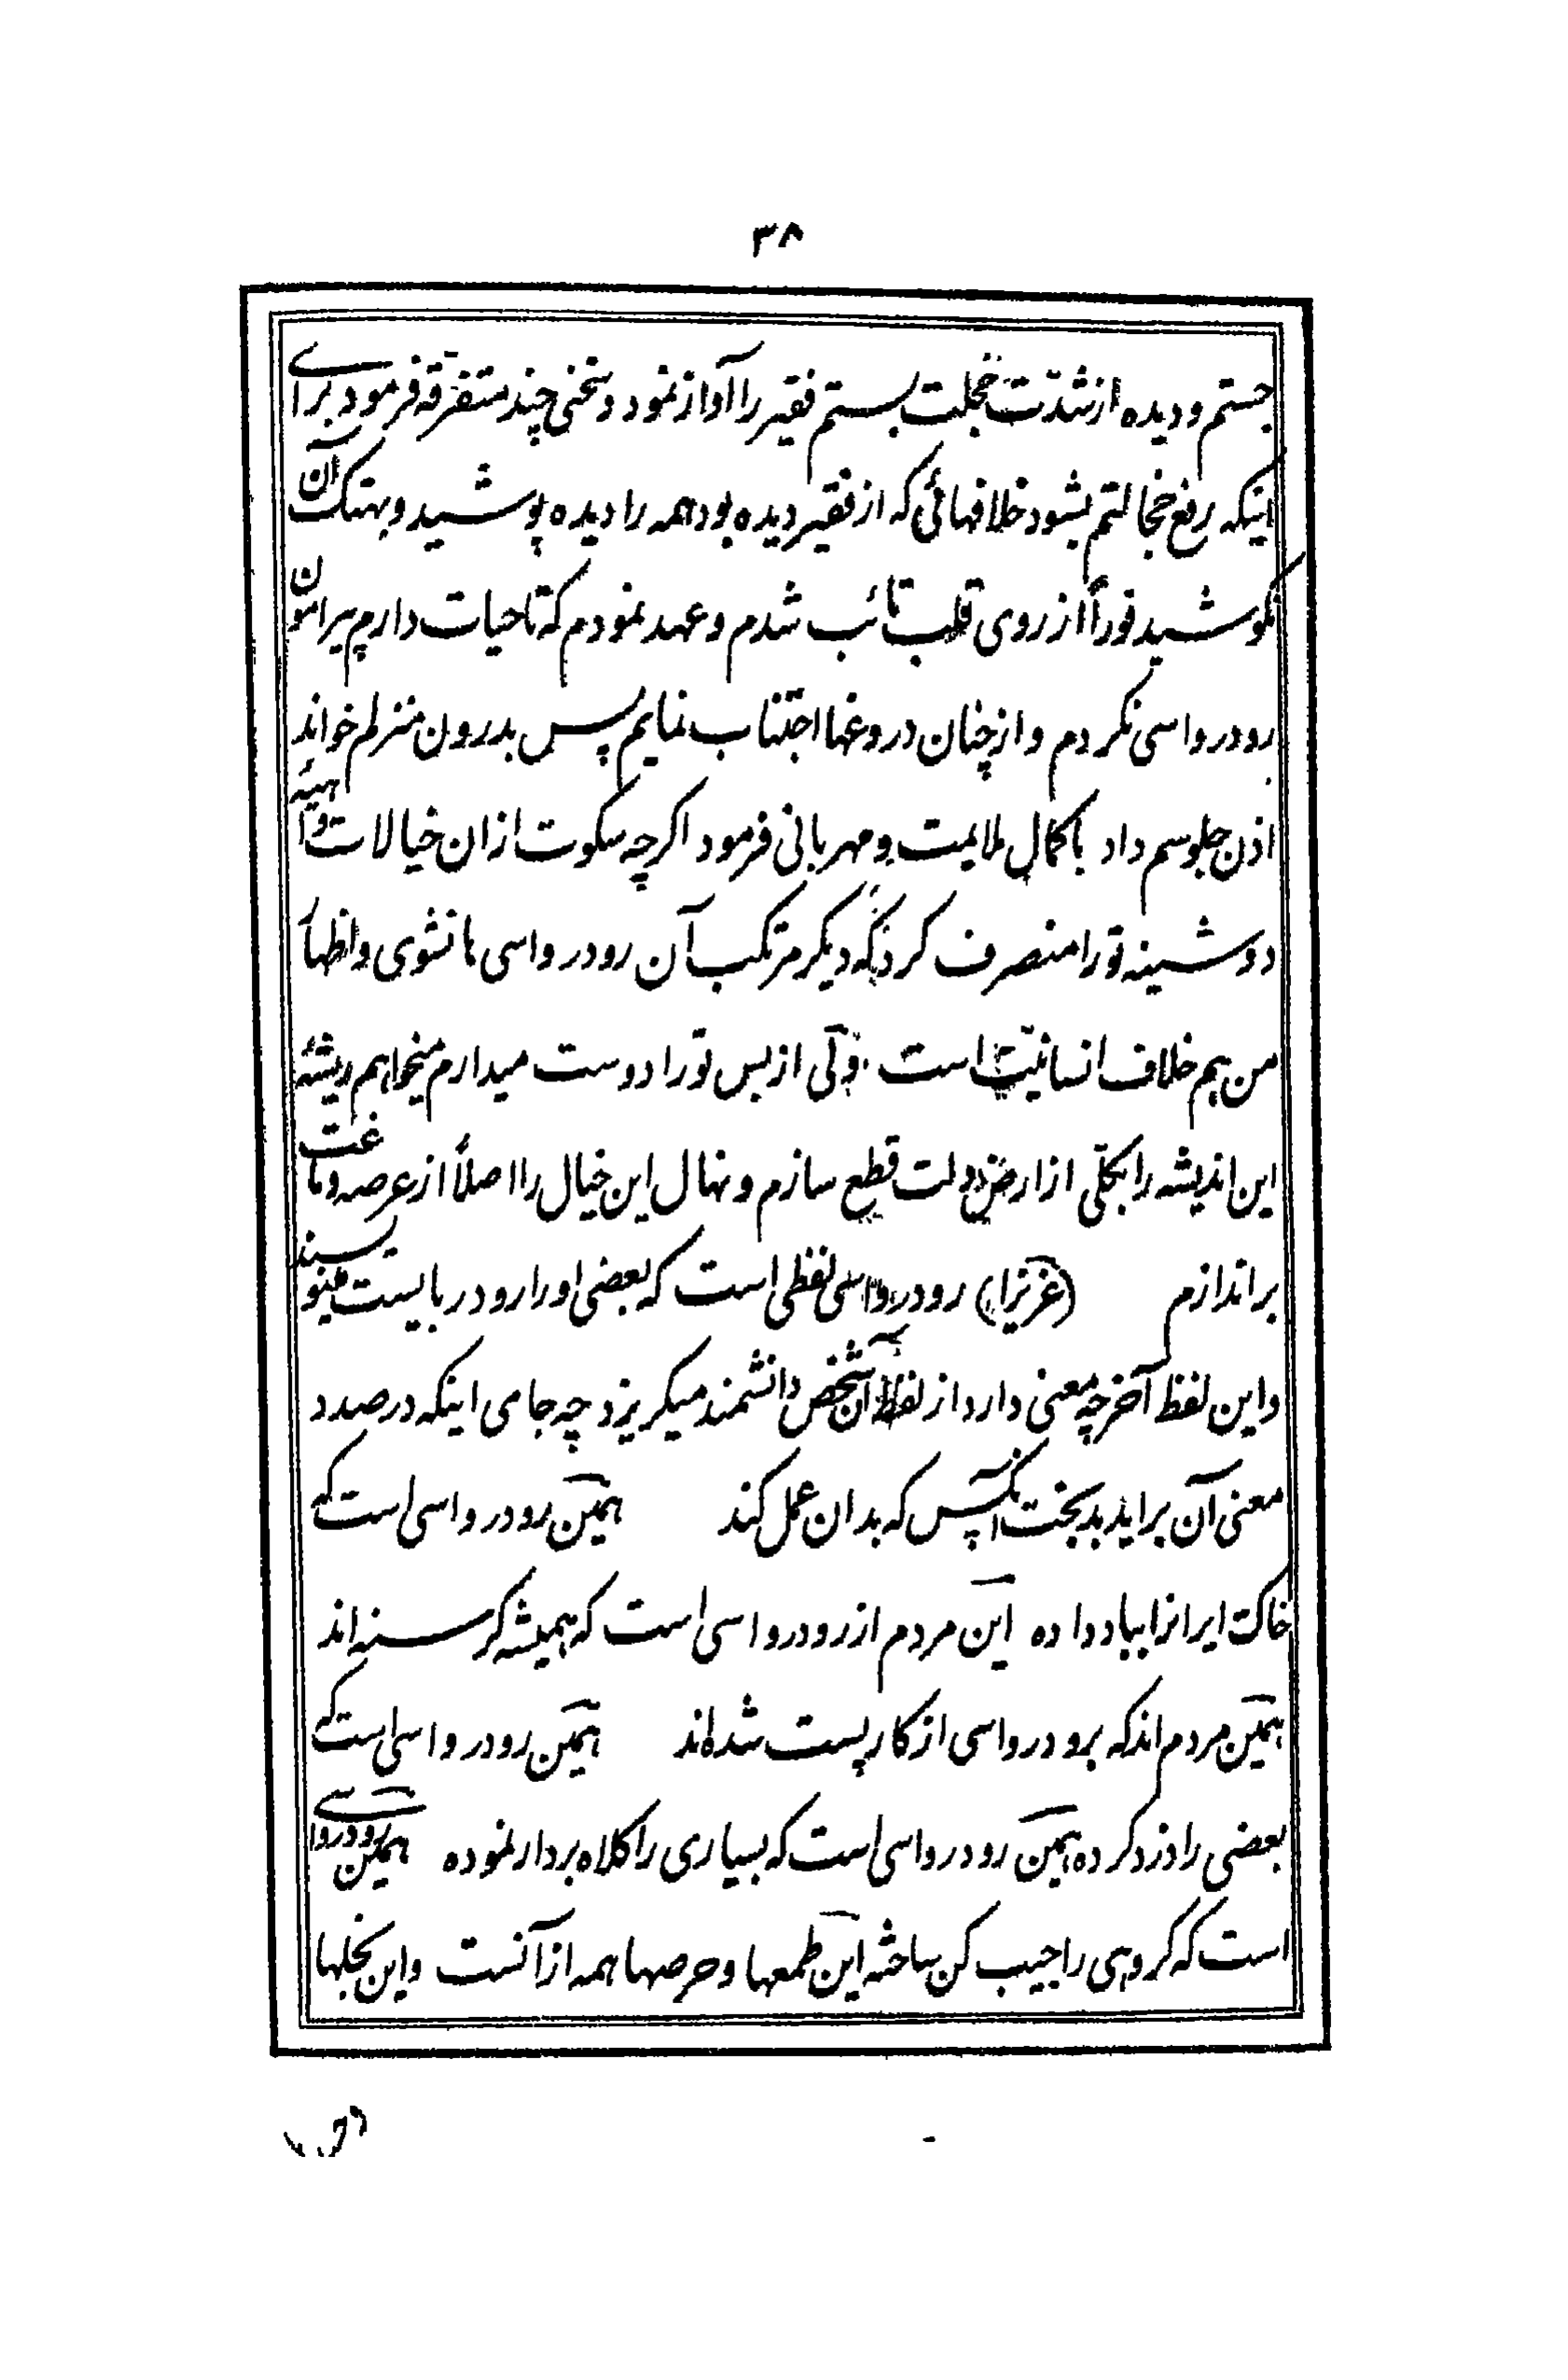 ۳۸
جستم و دیده از شدّت خجلت بستم فقیر را آواز نمود و سخنی چند متفرقه فرمود برای
اینکه رفع خجالتم بشود خلافهائی که از فقیر دیده بود همه را دیده پوشید و بهتک آن
نکوشید فوراً از روی قلب تائب شدم و عهد نمودم که تا حیات دارم پیرامون
رودرواسی نکردم و از چنان دروغها اجتناب نمایم پس بدرون منزلم خواند
اذن جلوسم داد با کمال ملایمت و مهربانی فرمود اکرچه سکوت ازان خیالات واهیهٔ
دوشینه تو را منصرف کرد که دیکر مرتکب آن رودرواسی ها نشوی و اظهار
من هم خلاف انسانیّت است ولی از بس تو را دوست میدارم میخواهم ریشهٔ
این اندیشه را بکلّی از ارض دولت قطع سازم و نهال این خیال را اصلاً از عرصه دماغت
براندازم (عزیزا) رودرواسی لفظی است که بعضی او را رودربایست مینویسند
و این لفظ آخر چه معنی دارد از لفظ آن شخص دانشمند میکریزد چه جای اینکه در صدد
معنی آن براید بدبخت آنکس که بدان عمل کند همین رودرواسی است که
خاک ایرانرا بباد داده این مردم از رودرواسی است که همیشه کرسنه اند
همین مردم اند که برودرواسی از کار پست شده‌اند همین رودرواسی است که
بعضی را دزد کرده همین رودرواسی است که بسیاری را کلاه بردار نموده همین رودرواسی
است که کروهی را جیب کن ساخته این طمعها و حرصها همه از آنست و این بخلها